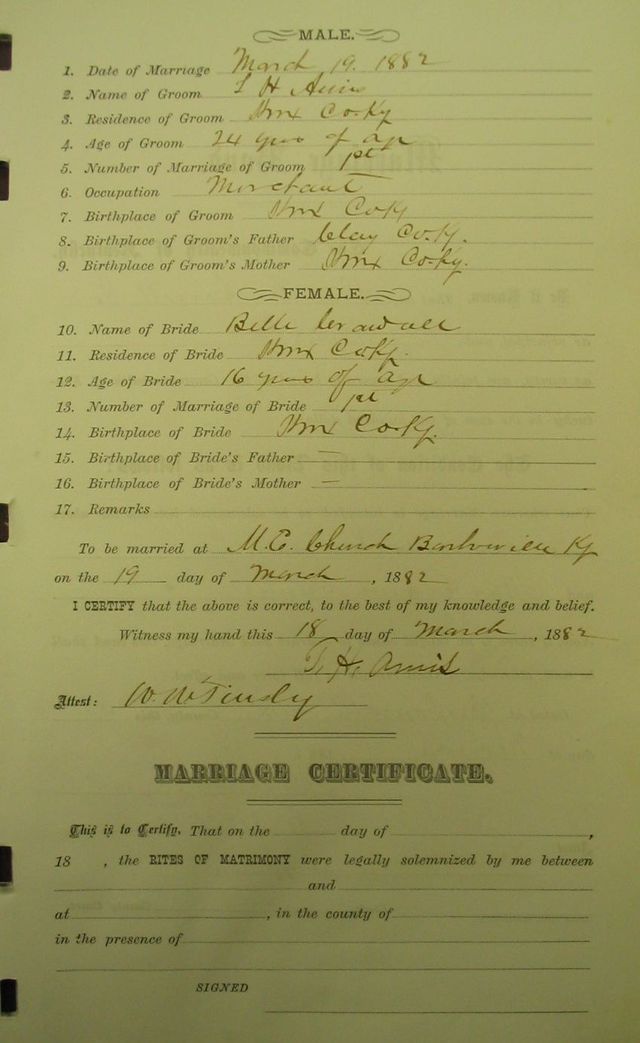 MALE.
1. Date of Marriage March 19. 1882
2. Name of Groom T H Amis
3. Residence of Groom Knx Co Ky
4. Age of Groom 24 yrs of age
5. Number of Marriage of Groom 1st
6. Occupation Merchant
7. Birthplace of Groom Knx Co Ky
8. Birthplace of Groom's Father Clay Co. Ky.
9. Birthplace of Groom's Mother Knx Co. Ky.
FEMALE.
10. Name of Bride Belle
11. Residence of Bride Knx Co Ky.
12. Age of Bride 16 yrs of age
13. Number of Marriage of Bride 1st
14. Birthplace of Bride Knx Co. Ky.
15. Birthplace of Bride's Father —
16. Birthplace of Bride's Mother —
17. Remarks
To be married at M. E. Church Barbourville Ky
on the 19 day of March , 1882
I CERTIFY that the above is correct, to the best of my knowledge and belief.
Witness my hand this 18 day of March , 1882
T. H. Amis
Attest: W. W Tinsley
MARRIAGE CERTIFICATE.
This is to Certify, That on the day of ,
18 , the RITES OF MATRIMONY were legally solemnized by me between
and
at , in the county of
in the presence of
SIGNED